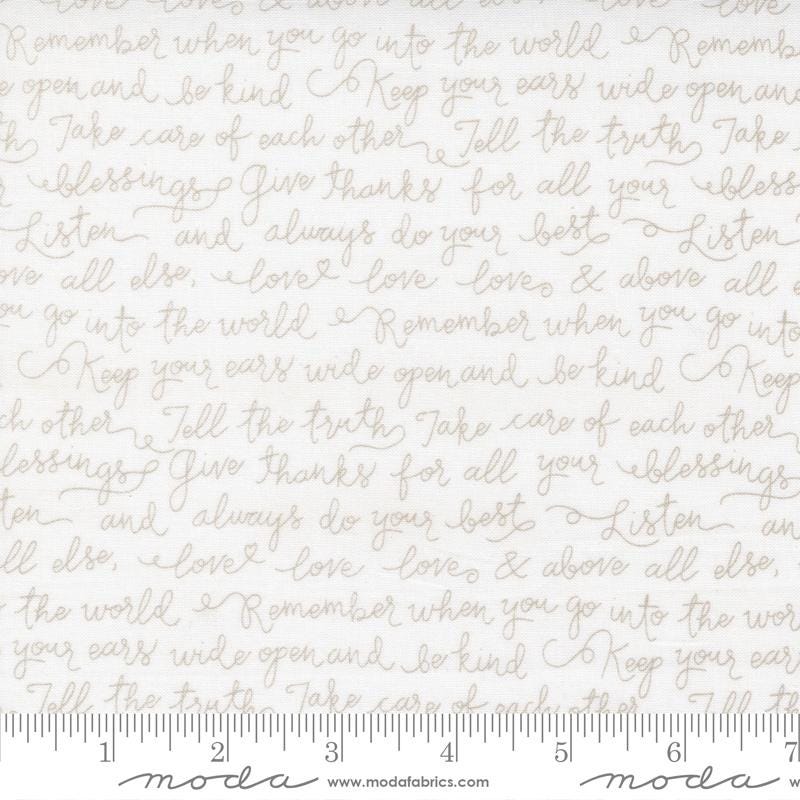 love love & above all else, love love
Remember when you go into the world Rememb
e open and be kind Keep your ears wide open and
h Take care of each other Tell the truth Take
r blessings Give thanks for all your bless
Listen and always do your best Listen
ove all else, love love love & above all e
ou go into the world Remember when you go into
Keep your ears wide open and be kind Keep
ch other Tell the truth Take care of each other
lessings Give thanks for all your blessings
ten and always do your best Listen an
ll else, love love love & above all else,
the world Remember when you go into the wor
your ears wide open and be kind Keep your ear
Tell the truth Take care of each other Tell th
1 2 3 4 5 6 7
moda www.modafabrics.com moda w